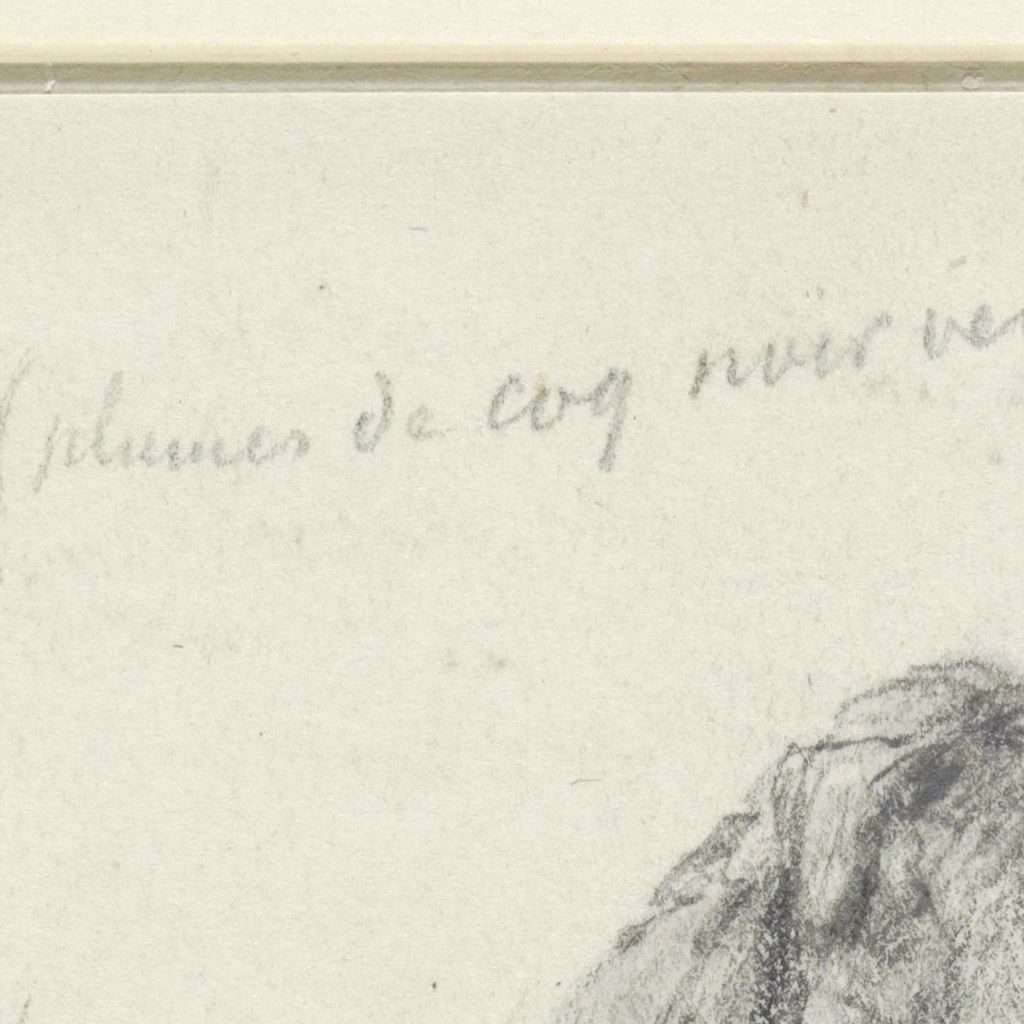 (plumes de coq noir ver